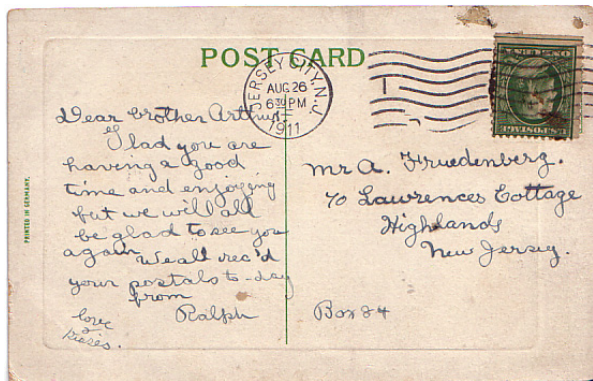 POST CARD
JERSEY CITY, N.J.
AUG 26
6 30 PM
1911
Dear brother Arthur:
Glad you are
having a good
time and enjoying
but we will all
be glad to see you
again We all rec'd
your postals to-day
from
Ralph
love
&
kisses.
Mr A. Fruedenberg.
70 Lawrences Cottage
Highlands
New Jersey.
Box 84
PRINTED IN GERMANY.